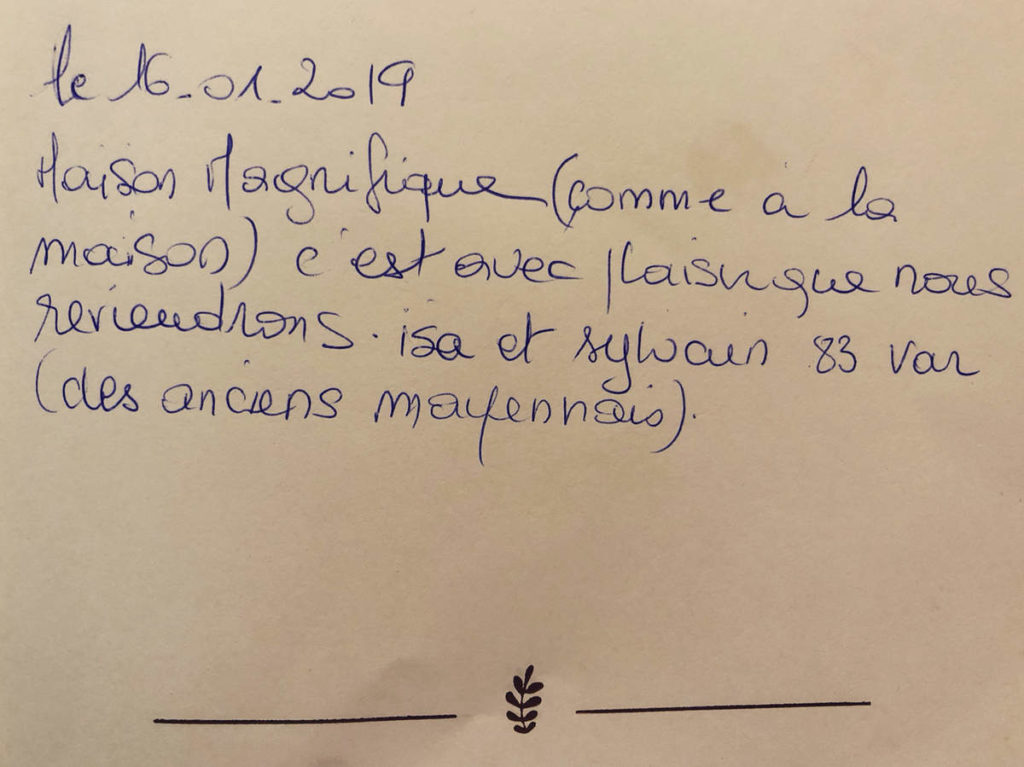 le 16.01.2019
Maison Magnifique (comme à la
maison) c'est avec plaisir que nous
reviendrons. isa et sylvain 83 var
(des anciens mayennais).